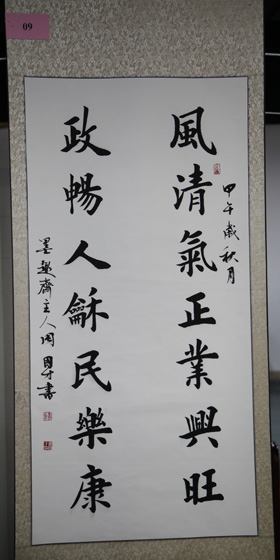 09
風清氣正業興旺
甲午歲秋月
政暢人龢民樂康
墨趣齋主人周國才書